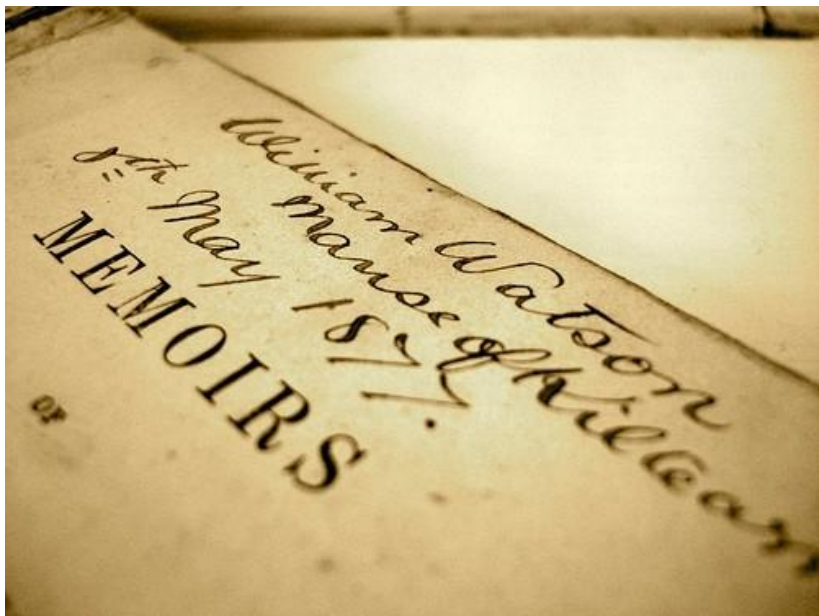 William Watson
Manse of Killearn
8th May 1877.
MEMOIRS
OF